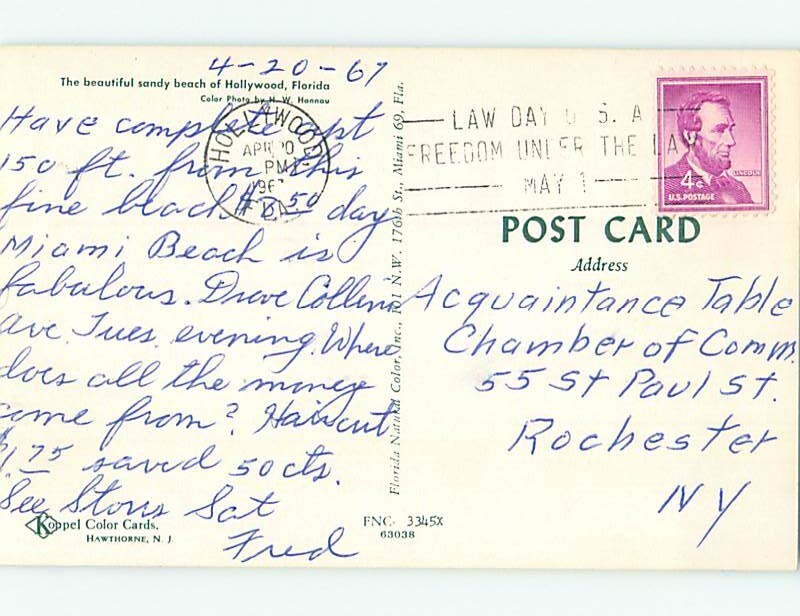 4-20-67
The beautiful sandy beach of Hollywood, Florida
Color Photo by H. W. Hannau
Have complete apt
150 ft. from this
fine beach $ 50 day
Miami Beach is
fabulous. Drove Collins
Ave. Tues. evening. Where
does all the money
come from? Haircut
$1.75 saved 50 cts.
See Stovis Sat
Fred
Koppel Color Cards.
HAWTHORNE, N. J.
Florida Natural Color, Inc., 101 N.W. 176th St., Miami 69, Fla.
HOLLYWOOD
APR 20
PM
196
FLA.
LAW DAY U. S. A
FREEDOM UNDER THE LAW
MAY 1
LINCOLN
4¢
U.S. POSTAGE
POST CARD
Address
Acquaintance Table
Chamber of Comm.
55 St Paul St.
Rochester
NY
FNC- 3345X
63038